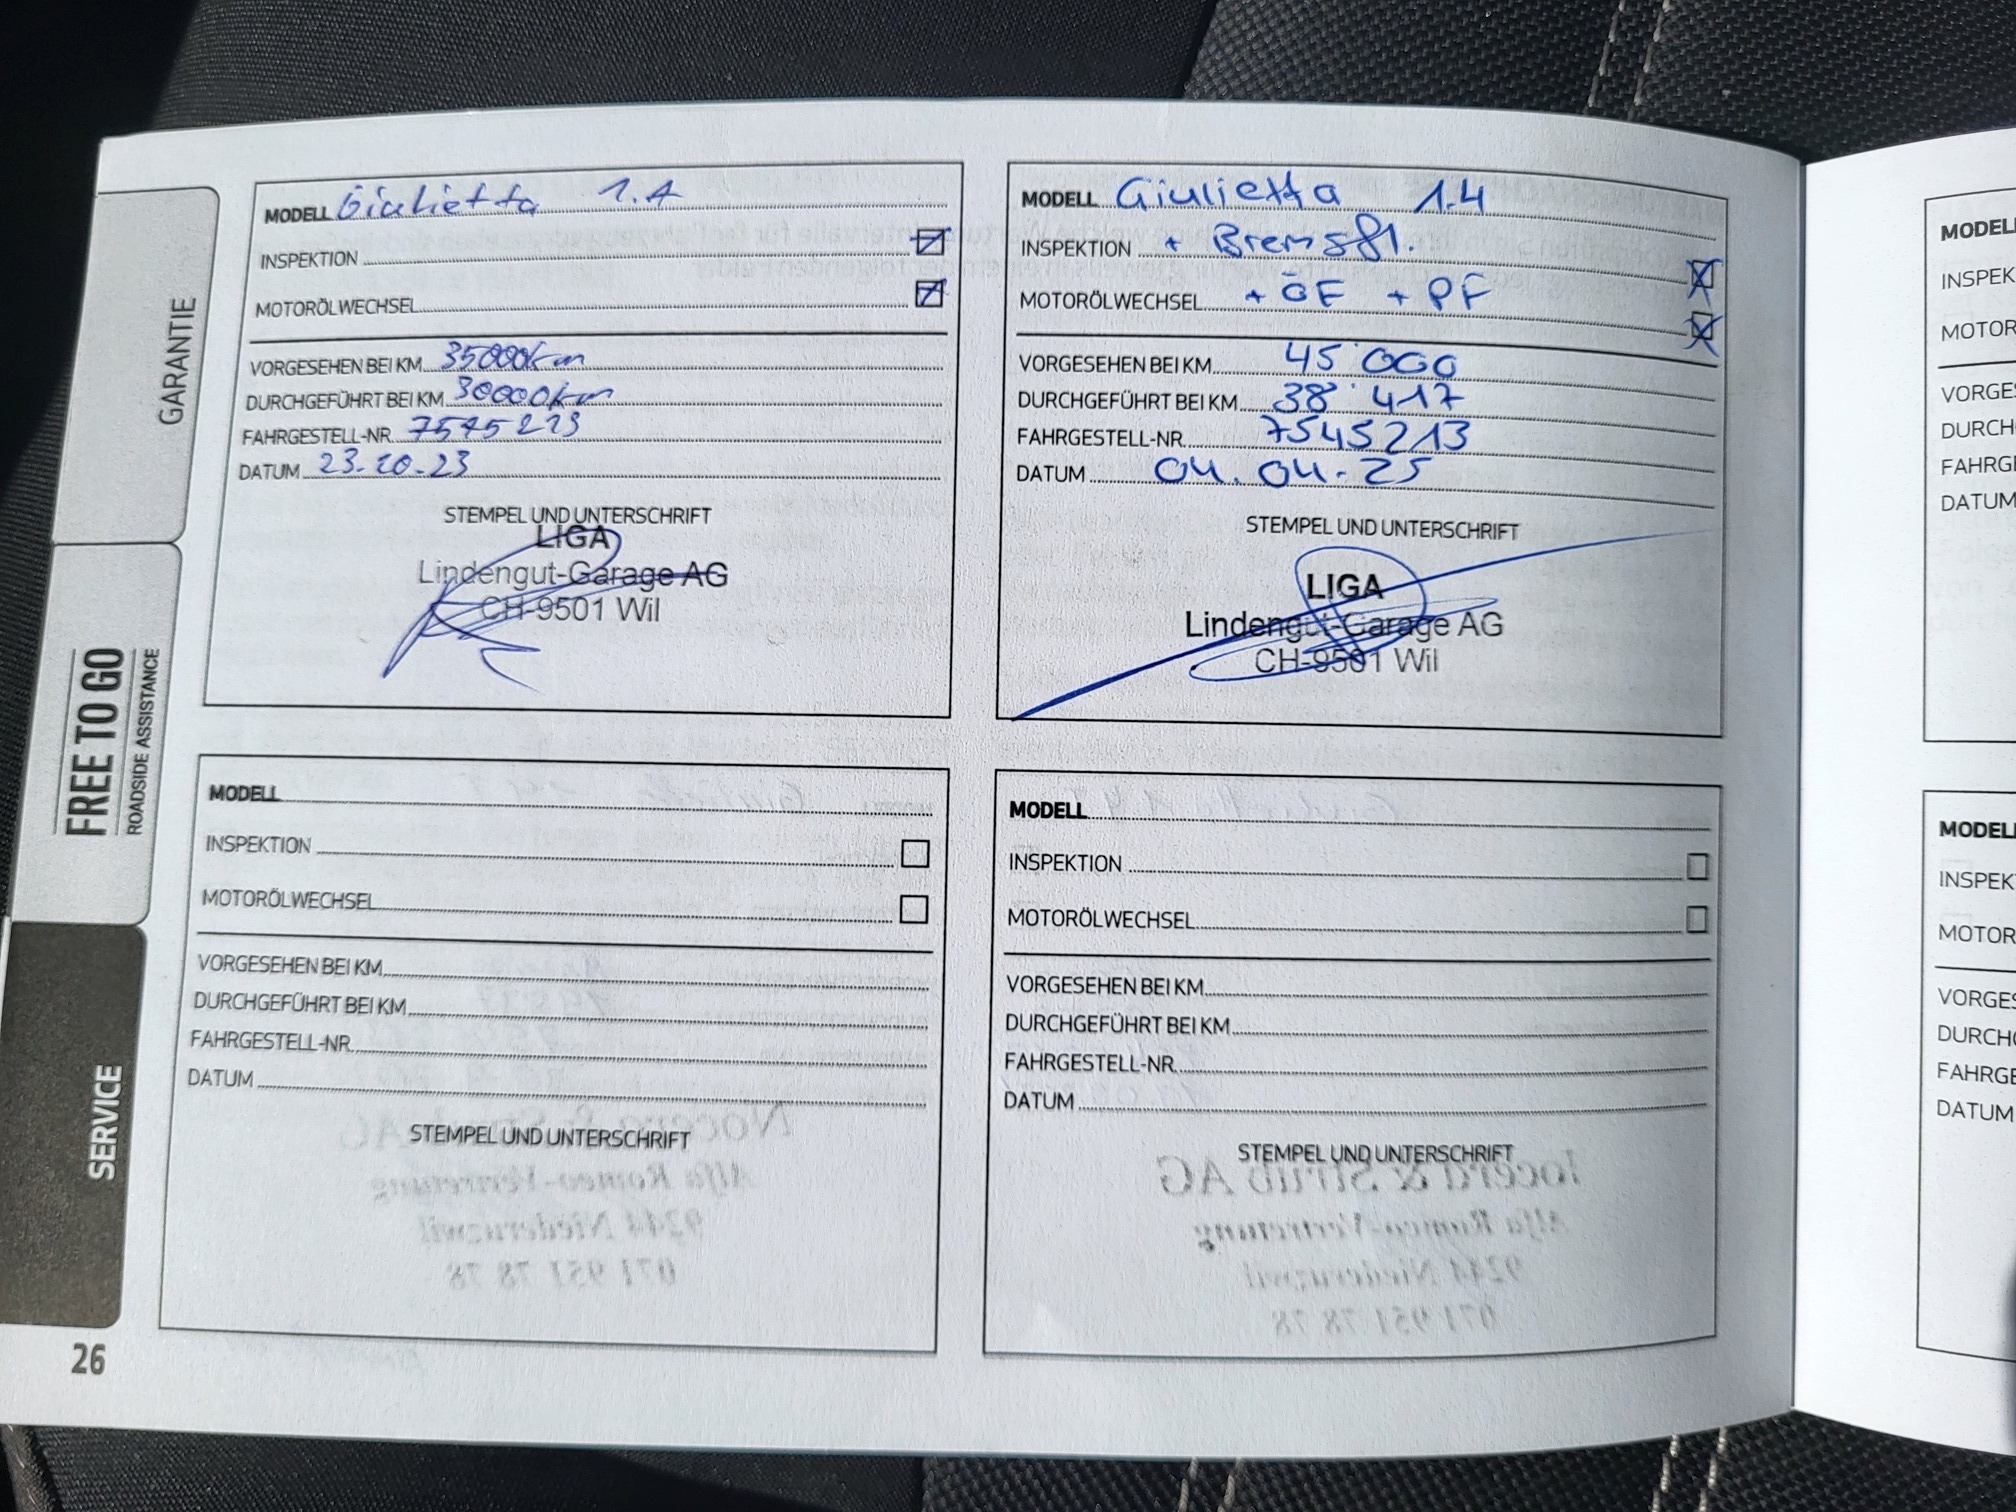 GARANTIE
FREE TO GO
ROADSIDE ASSISTANCE
SERVICE
MODELL Giulietta 1.4
INSPEKTION
MOTORÖLWECHSEL
VORGESEHEN BEI KM 35000km
DURCHGEFÜHRT BEI KM 30000km
FAHRGESTELL-NR. 7545213
DATUM 23.10.23
STEMPEL UND UNTERSCHRIFT
LIGA
Lindengut-Garage AG
CH-9501 Wil
MODELL Giulietta 1.4
INSPEKTION + Bremsfl.
MOTORÖLWECHSEL + ÖF + PF
VORGESEHEN BEI KM 45'000
DURCHGEFÜHRT BEI KM 38'417
FAHRGESTELL-NR. 7545213
DATUM 04.04.25
STEMPEL UND UNTERSCHRIFT
LIGA
Lindengut-Garage AG
CH-9501 Wil
MODELL
INSPEKTION
MOTORÖLWECHSEL
VORGESEHEN BEI KM
DURCHGEFÜHRT BEI KM
FAHRGESTELL-NR.
DATUM
STEMPEL UND UNTERSCHRIFT
MODELL
INSPEKTION
MOTORÖLWECHSEL
VORGESEHEN BEI KM
DURCHGEFÜHRT BEI KM
FAHRGESTELL-NR.
DATUM
STEMPEL UND UNTERSCHRIFT
26
MODELL
INSPEK
MOTOR
VORGES
DURCH
FAHRG
DATUM
MODELL
INSPEK
MOTOR
VORGES
DURCH
FAHRGE
DATUM